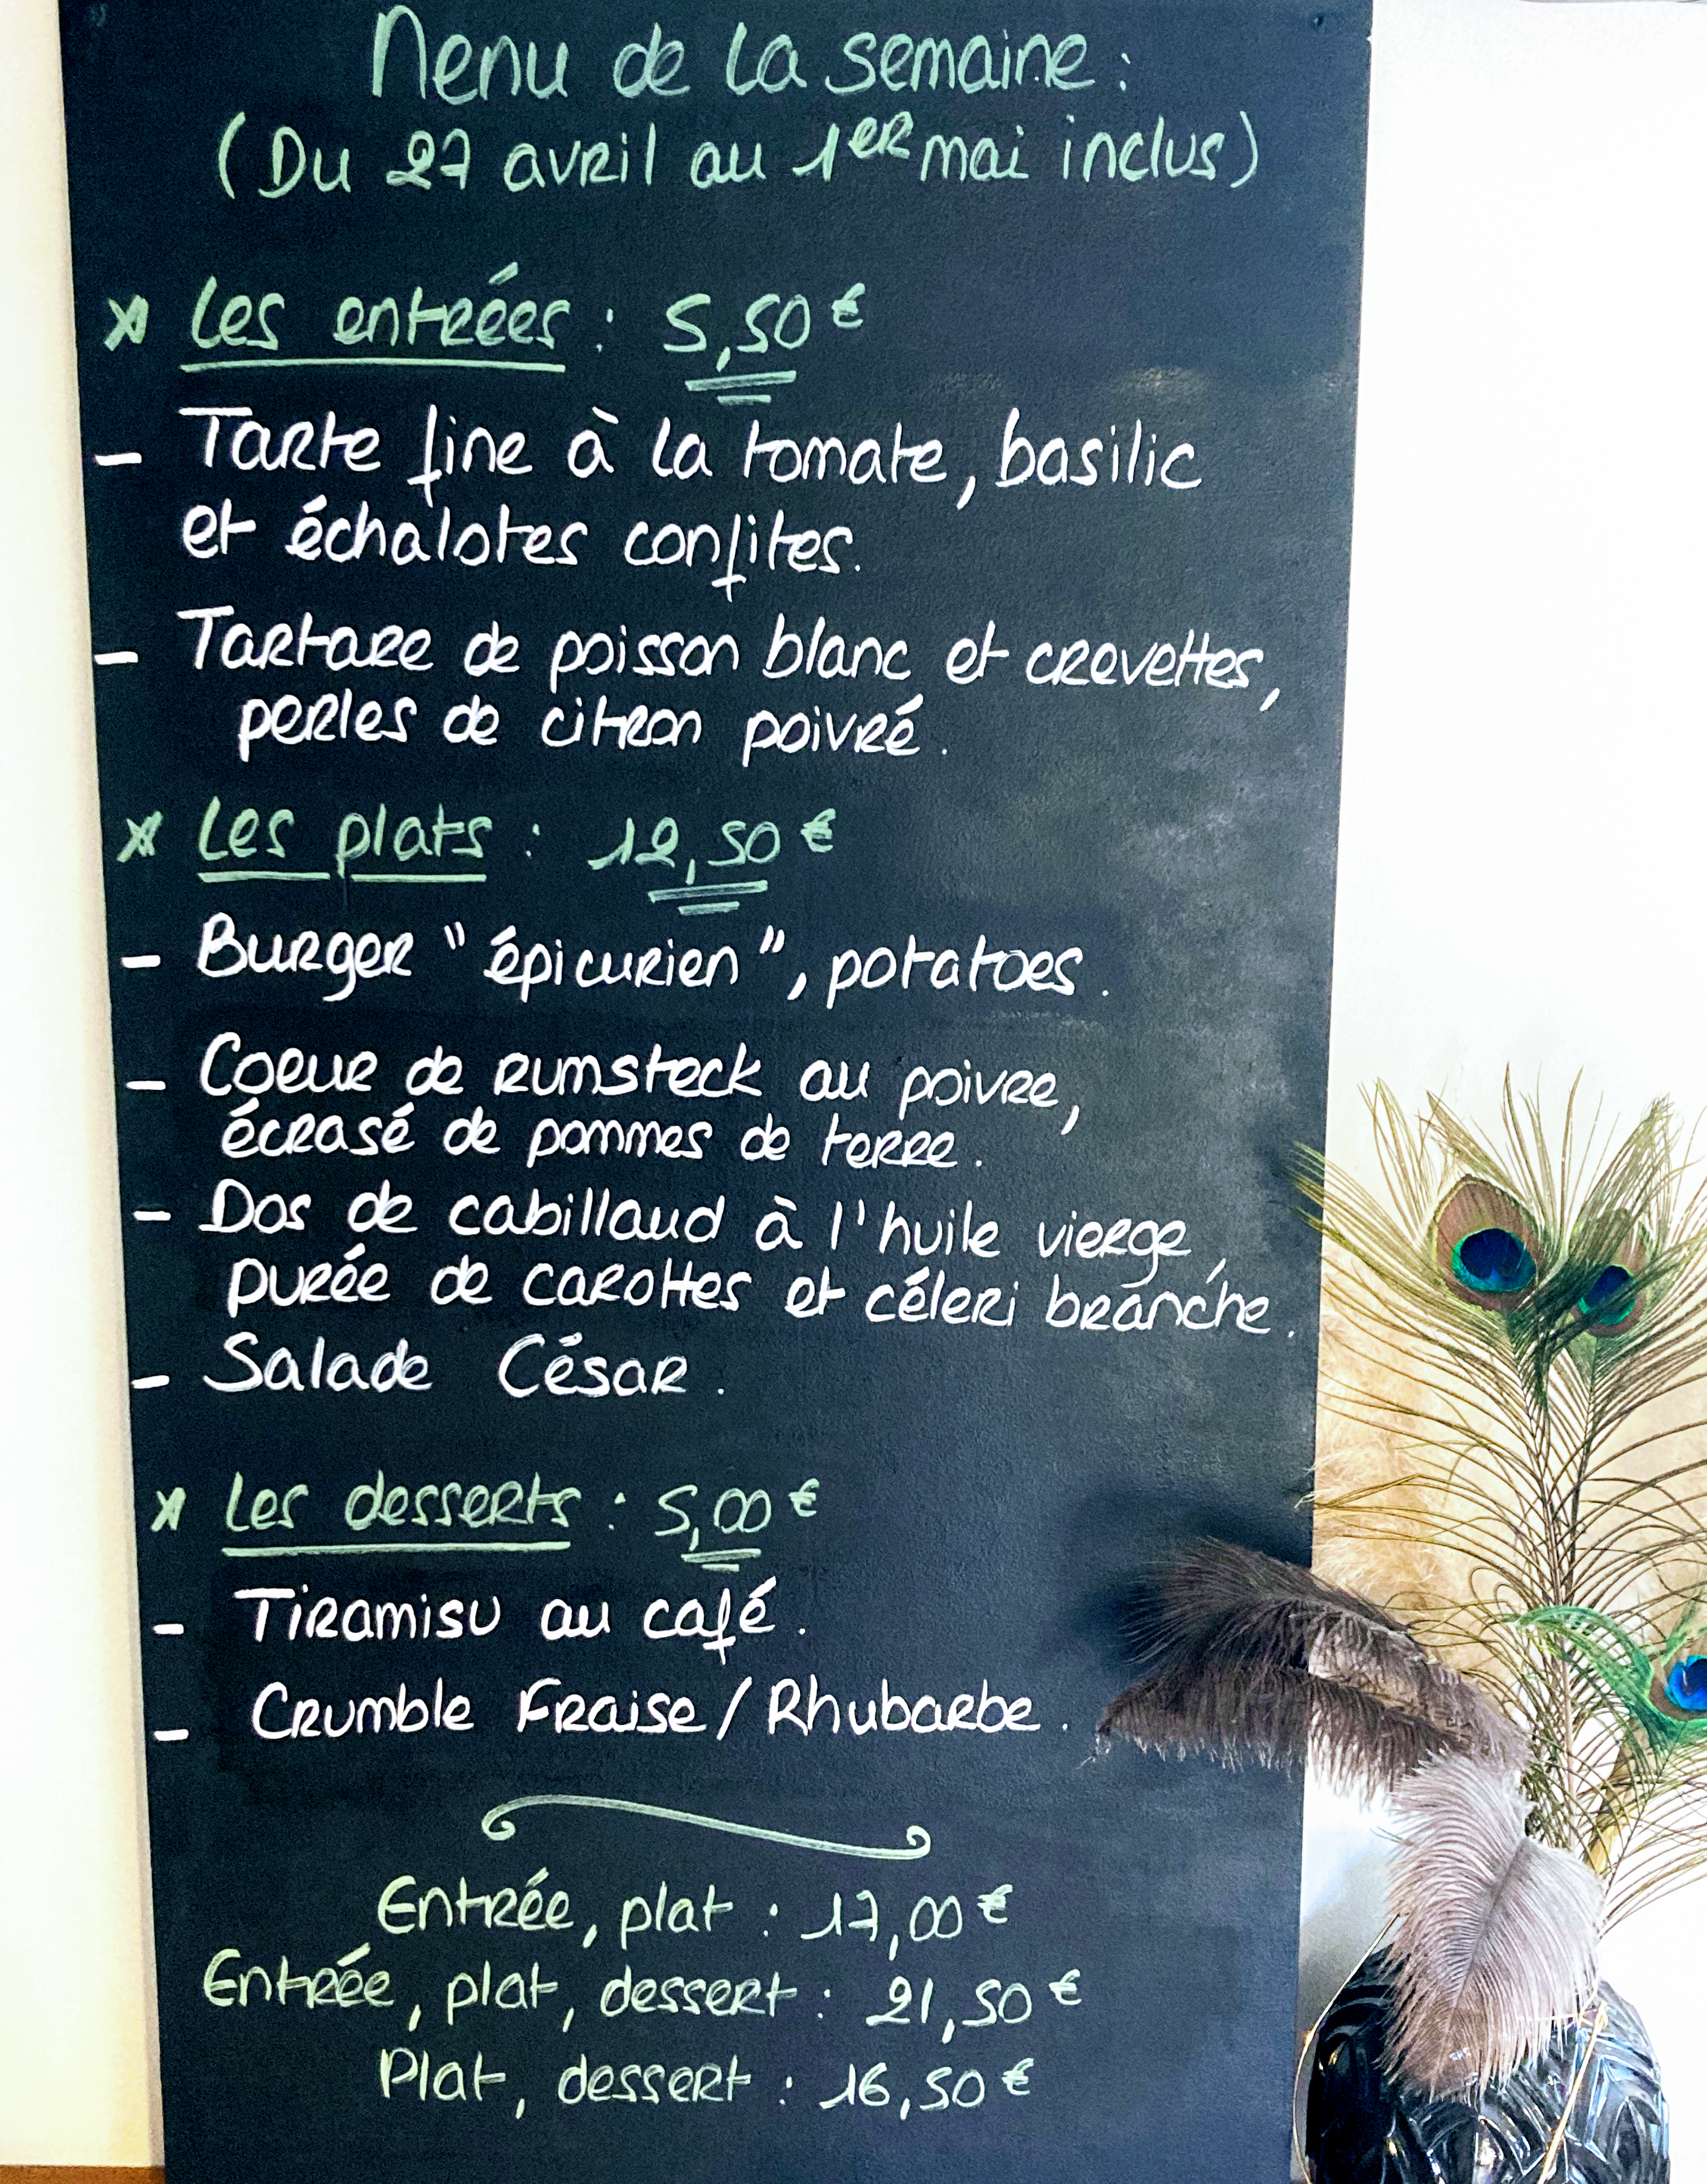 Menu de la semaine :
(Du 27 avril au 1er mai inclus)
* Les entrées : 5,50 €
- Tarte fine à la tomate, basilic
et échalotes confites.
- Tartare de poisson blanc et crevettes,
perles de citron poivré.
* Les plats : 12,50 €
- Burger "épicurien", potatoes.
- Coeur de rumsteck au poivre,
écrasé de pommes de terre.
- Dos de cabillaud à l'huile vierge,
purée de carottes et céleri branche.
- Salade César.
* Les desserts : 5,00 €
- Tiramisu au café.
- Crumble Fraise/Rhubarbe.
Entrée, plat : 17,00 €
Entrée, plat, dessert : 21,50 €
Plat, dessert : 16,50 €